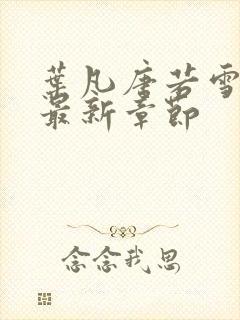 葉凡唐若雪
最新章節
念念我思